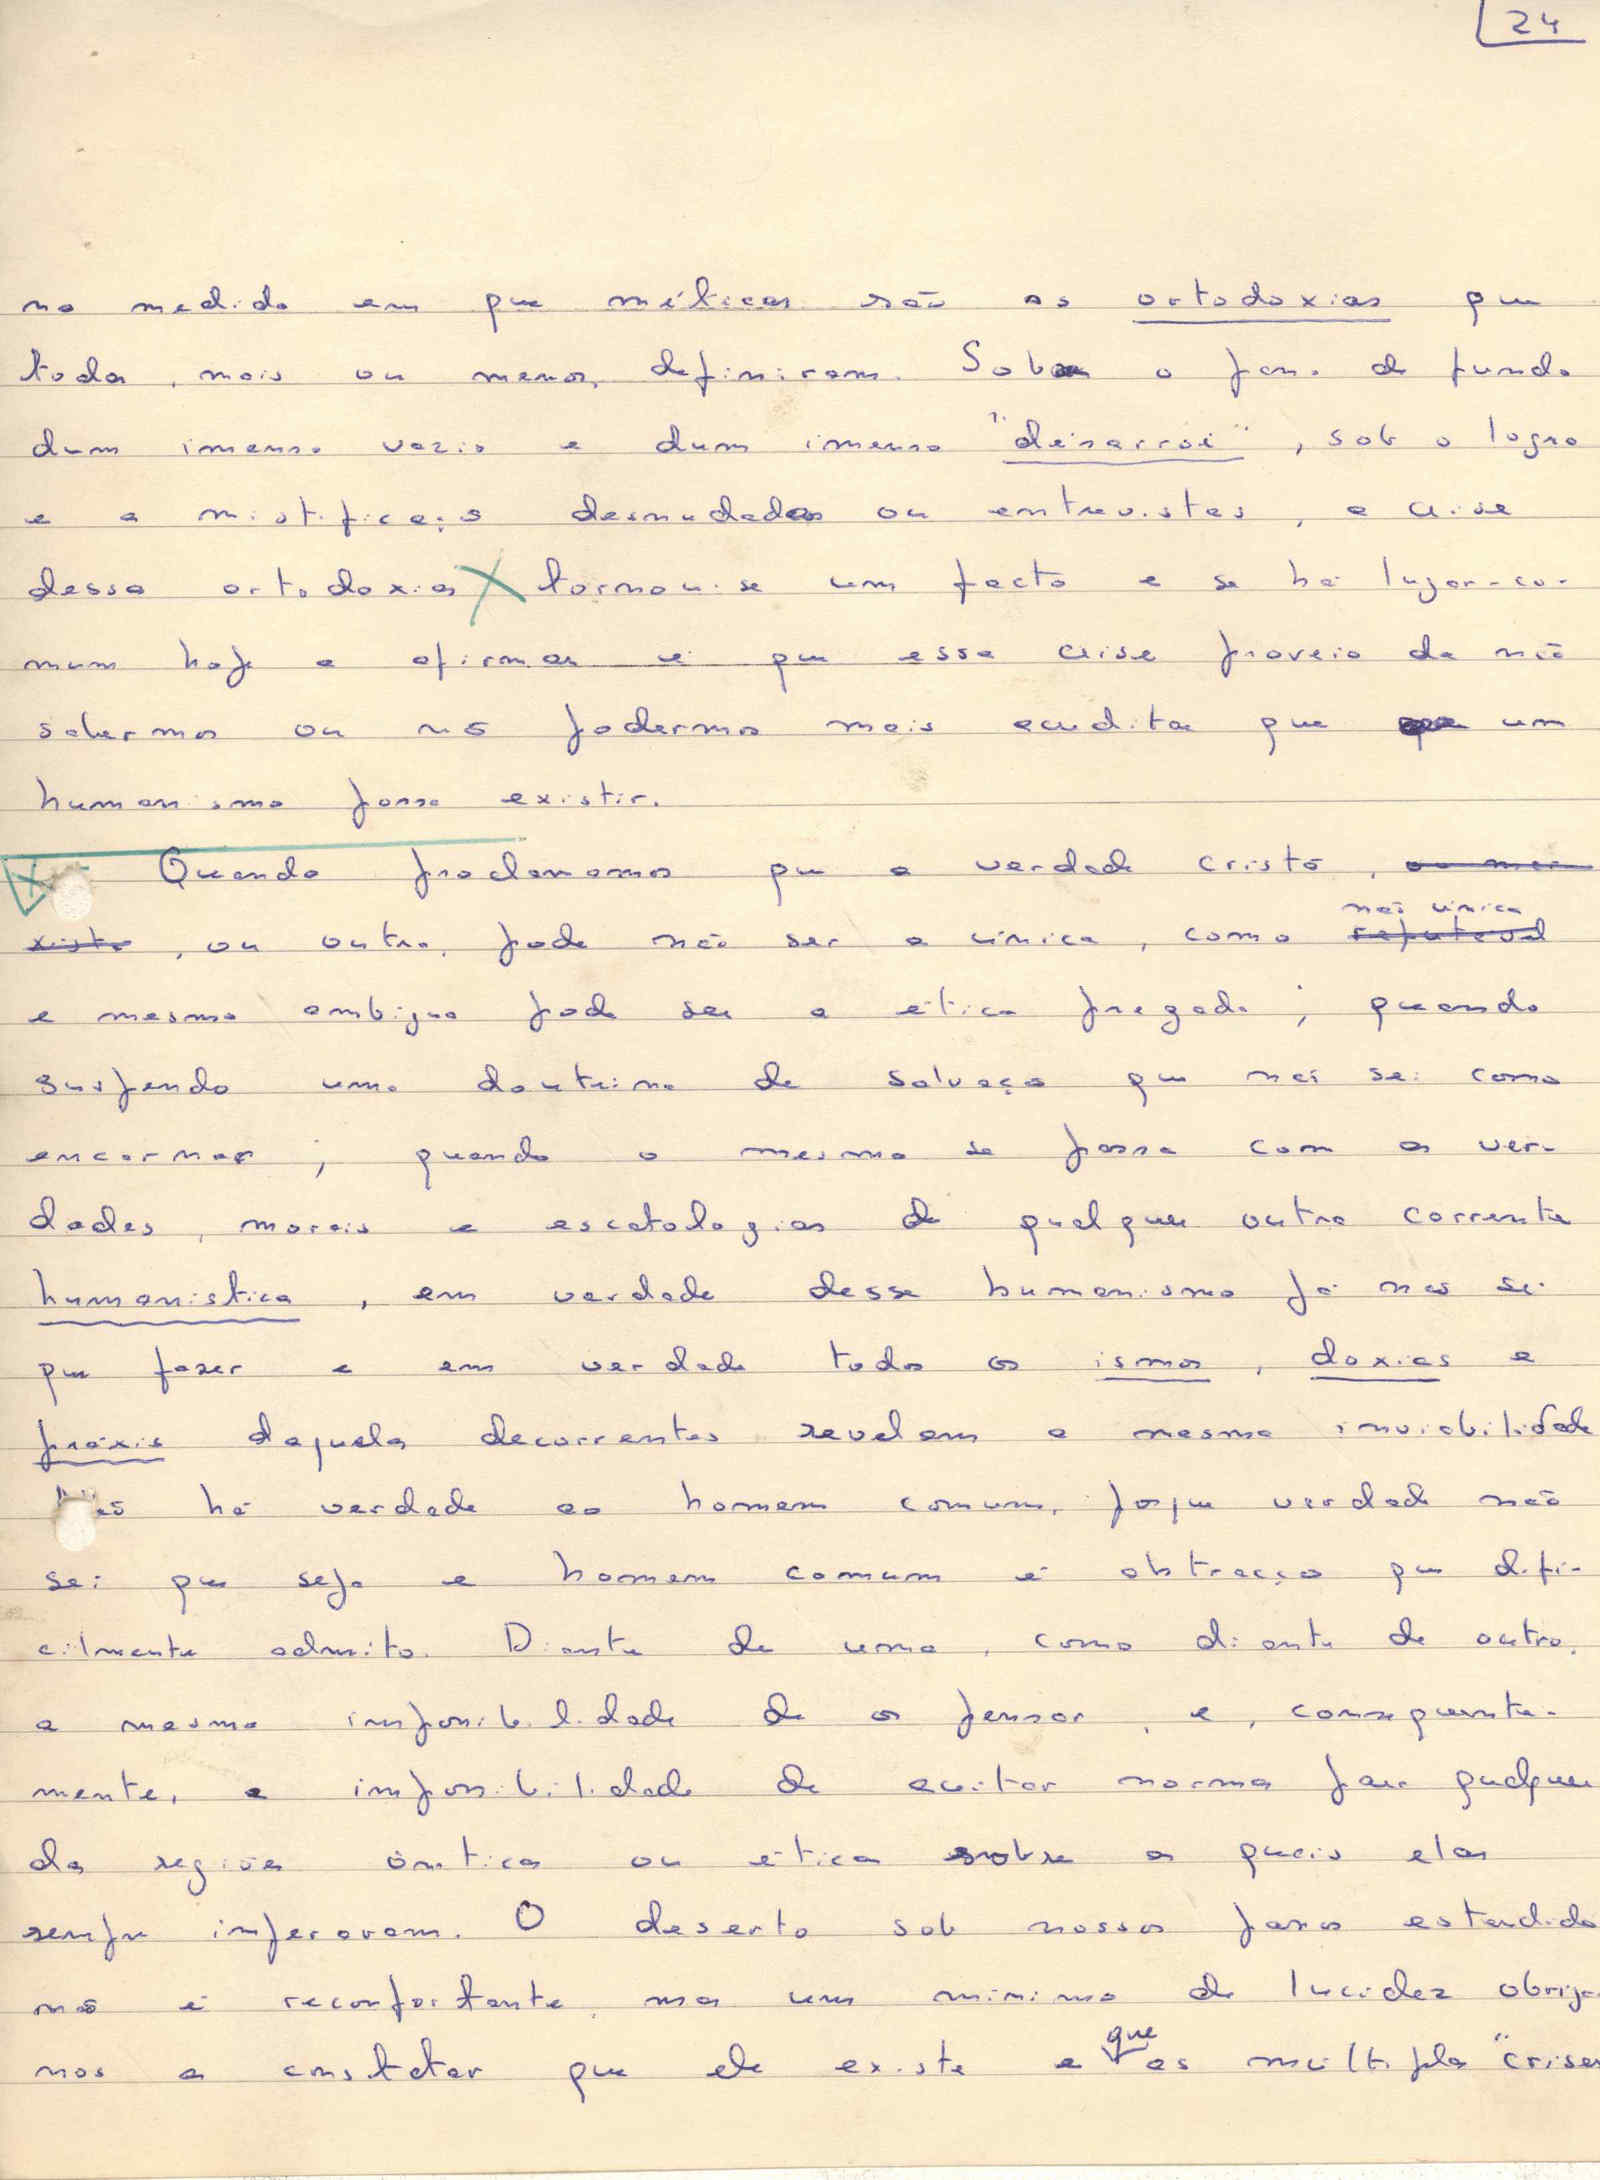 24
na medida em que míticas são as ortodoxias que
todos, mais ou menos, definiram. Sobre o pano de fundo
dum imenso vazio e dum imenso "désarroi", sob o logro
e a mistificação desnudadas ou entrevistas, a crise
dessas ortodoxias tornou-se um facto e se há lugar-co-
mum hoje a afirmar é que essa crise proveio de não
sabermos ou não podermos mais acreditar que um
humanismo possa existir.
Quando proclamamos que a verdade cristã, ou mar-
xista, ou outra, pode não ser a única, como não única
e mesmo ambígua pode ser a ética pregada; quando
suspendo uma doutrina de salvação que não sei como
encarnar; quando o mesmo se passa com as ver-
dades, morais e escatologias de qualquer outra corrente
humanística, em verdade desse humanismo já não sei
que fazer e em verdade todos os ismos, doxias e
práxis daquelas decorrentes revelam a mesma inviabilidade
Não há verdade ao homem comum, porque verdade não
sei que seja e homem comum é abstracção que difi-
cilmente admito. Diante de uma, como diante de outro,
a mesma impossibilidade de os pensar, e, consequente-
mente, a impossibilidade de aceitar normas para qualquer
das regiões ônticas ou éticas sobre as quais elas
sempre imperaram. O deserto sob nossos passos estendido
não é reconfortante, mas um mínimo de lucidez obriga-
nos a constatar que ele existe e que as múltiplas "crises